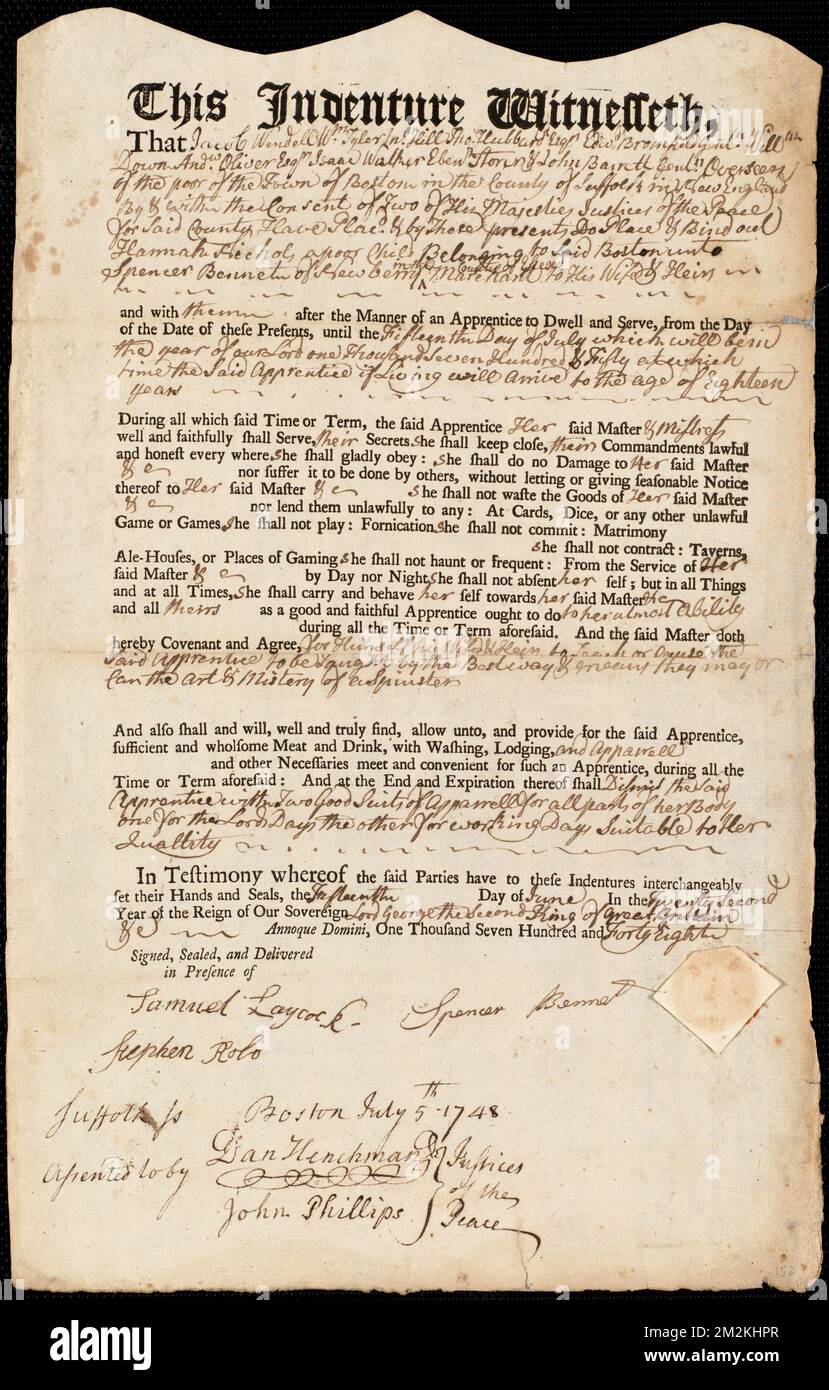 This Indenture Witnesseth,
That Jacob Wendell Wm Tyler Jno Hill Tho. Hubbard Esqrs Edwd Bromfield Willm
Down Andw Oliver Esqrs Isaac Walker Ebenr Storer & John Barrett Gentn Overseers
of the poor of the Town of Boston in the County of Suffolk in New England
By & with the Consent of Two of His Majesties Justices of the Peace
for Said County Have Plac'd & by these presents Do Place & Bind out
Hannah Nichols a poor Child Belonging to Said Boston unto
Spencer Bennet of Newberry in the County of Marchant to His Wife & Heirs
and with them after the Manner of an Apprentice to Dwell and Serve, from the Day
of the Date of these Presents, until the Fifteenth Day of July which will be in
the year of our Lord one Thousand Seven Hundred & Fifty at which
time the Said Apprentice if Living will arrive to the age of Eighteen
years
During all which said Time or Term, the said Apprentice Her said Master & Mistress
well and faithfully shall Serve, their Secrets she shall keep close, their Commandments lawful
and honest every where she shall gladly obey: she shall do no Damage to Her said Master
&c nor suffer it to be done by others, without letting or giving seasonable Notice
thereof to Her said Master &c she shall not waste the Goods of Her said Master
&c nor lend them unlawfully to any: At Cards, Dice, or any other unlawful
Game or Games she shall not play: Fornication she shall not commit: Matrimony
she shall not contract: Taverns,
Ale-Houses, or Places of Gaming she shall not haunt or frequent: From the Service of Her
said Master &c by Day nor Night she shall not absent her self; but in all Things
and at all Times, she shall carry and behave her self towards her said Master &c
and all theirs as a good and faithful Apprentice ought to do to her utmost Ability
during all the Time or Term aforesaid. And the said Master doth
hereby Covenant and Agree, for Himself his Wife & Heirs to Teach or Cause the
said Apprentice to be Taught by the Best way & means they may or
Can the Art & Mistery of a Spinster
And also shall and will, well and truly find, allow unto, and provide for the said Apprentice,
sufficient and wholsome Meat and Drink, with Washing, Lodging, and Apparrell
and other Necessaries meet and convenient for such an Apprentice, during all the
Time or Term aforesaid: And at the End and Expiration thereof shall Dismis the said
Apprentice with Two Good Suits of Apparrell for all parts of her Body
one for the Lords Days the other for working Days Suitable to Her
Quallity
In Testimony whereof the said Parties have to these Indentures interchangeably
set their Hands and Seals, the Fifteenth Day of June In the Twenty Second
Year of the Reign of Our Sovereign Lord George the Second King of Great Brittain
&c Annoque Domini, One Thousand Seven Hundred and Forty Eight
Signed, Sealed, and Delivered
in Presence of
Samuel Laycock Spencer Bennet
Stephen Rolo
Suffolk ss Boston July 5th 1748
Assented to by Dan Henchman Justices
of the
John Phillips Peace
152
alamy
2M2KHPR
www.alamy.com